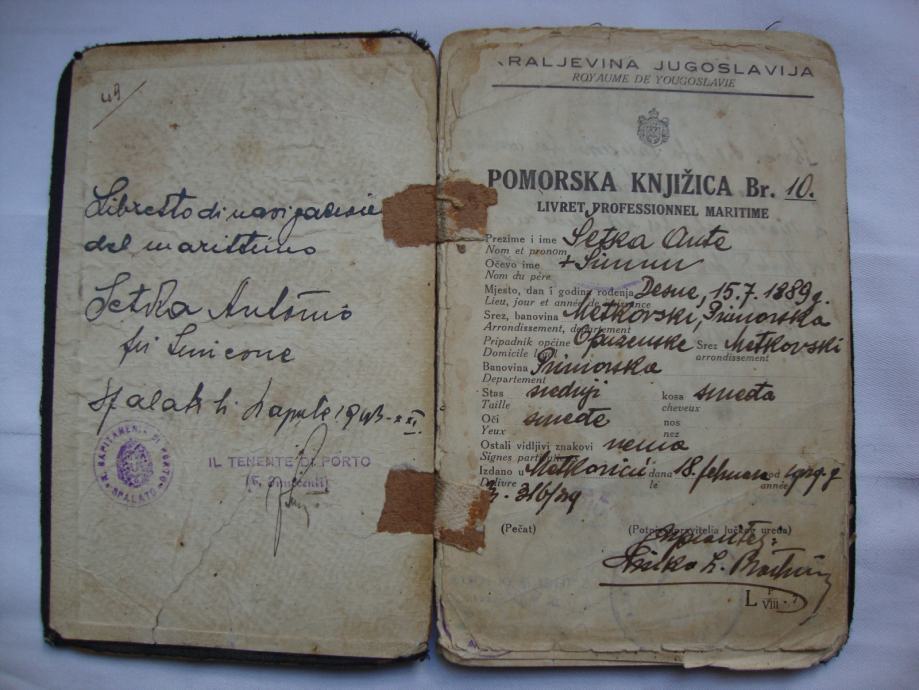 49
Libretto di navigazione
del marittimo
Setka Antonio
fu Simeone
Spalato li Aprile 1943-XXI
R. CAPITANERIA DI PORTO SPALATO
IL TENENTE DI PORTO
KRALJEVINA JUGOSLAVIJA
ROYAUME DE YOUGOSLAVIE
POMORSKA KNJIŽICA Br. 10.
LIVRET PROFESSIONNEL MARITIME
Prezime i ime Setka Ante
Nom et prenom
Očevo ime + Simun
Nom du père
Mjesto, dan i godina rođenja Desne, 15.7.1889 g.
Lieu, jour et année de naissance
Srez, banovina Metkovski, Primorska
Arrondissement, departement
Pripadnik općine Opuzenske Srez Metkovski
Domicile légal arrondissement
Banovina Primorska
Departement
Stas srednji kosa smeđa
Taille cheveux
Oči smeđe nos
Yeux nez
Ostali vidljivi znakovi nema
Signes particuliers
Izdano u Metkoviću dana 18. februara god 1929. g
Delivre le année
316/29
(Pečat) (Potpis upravitelja lučkog ureda)
L VIII